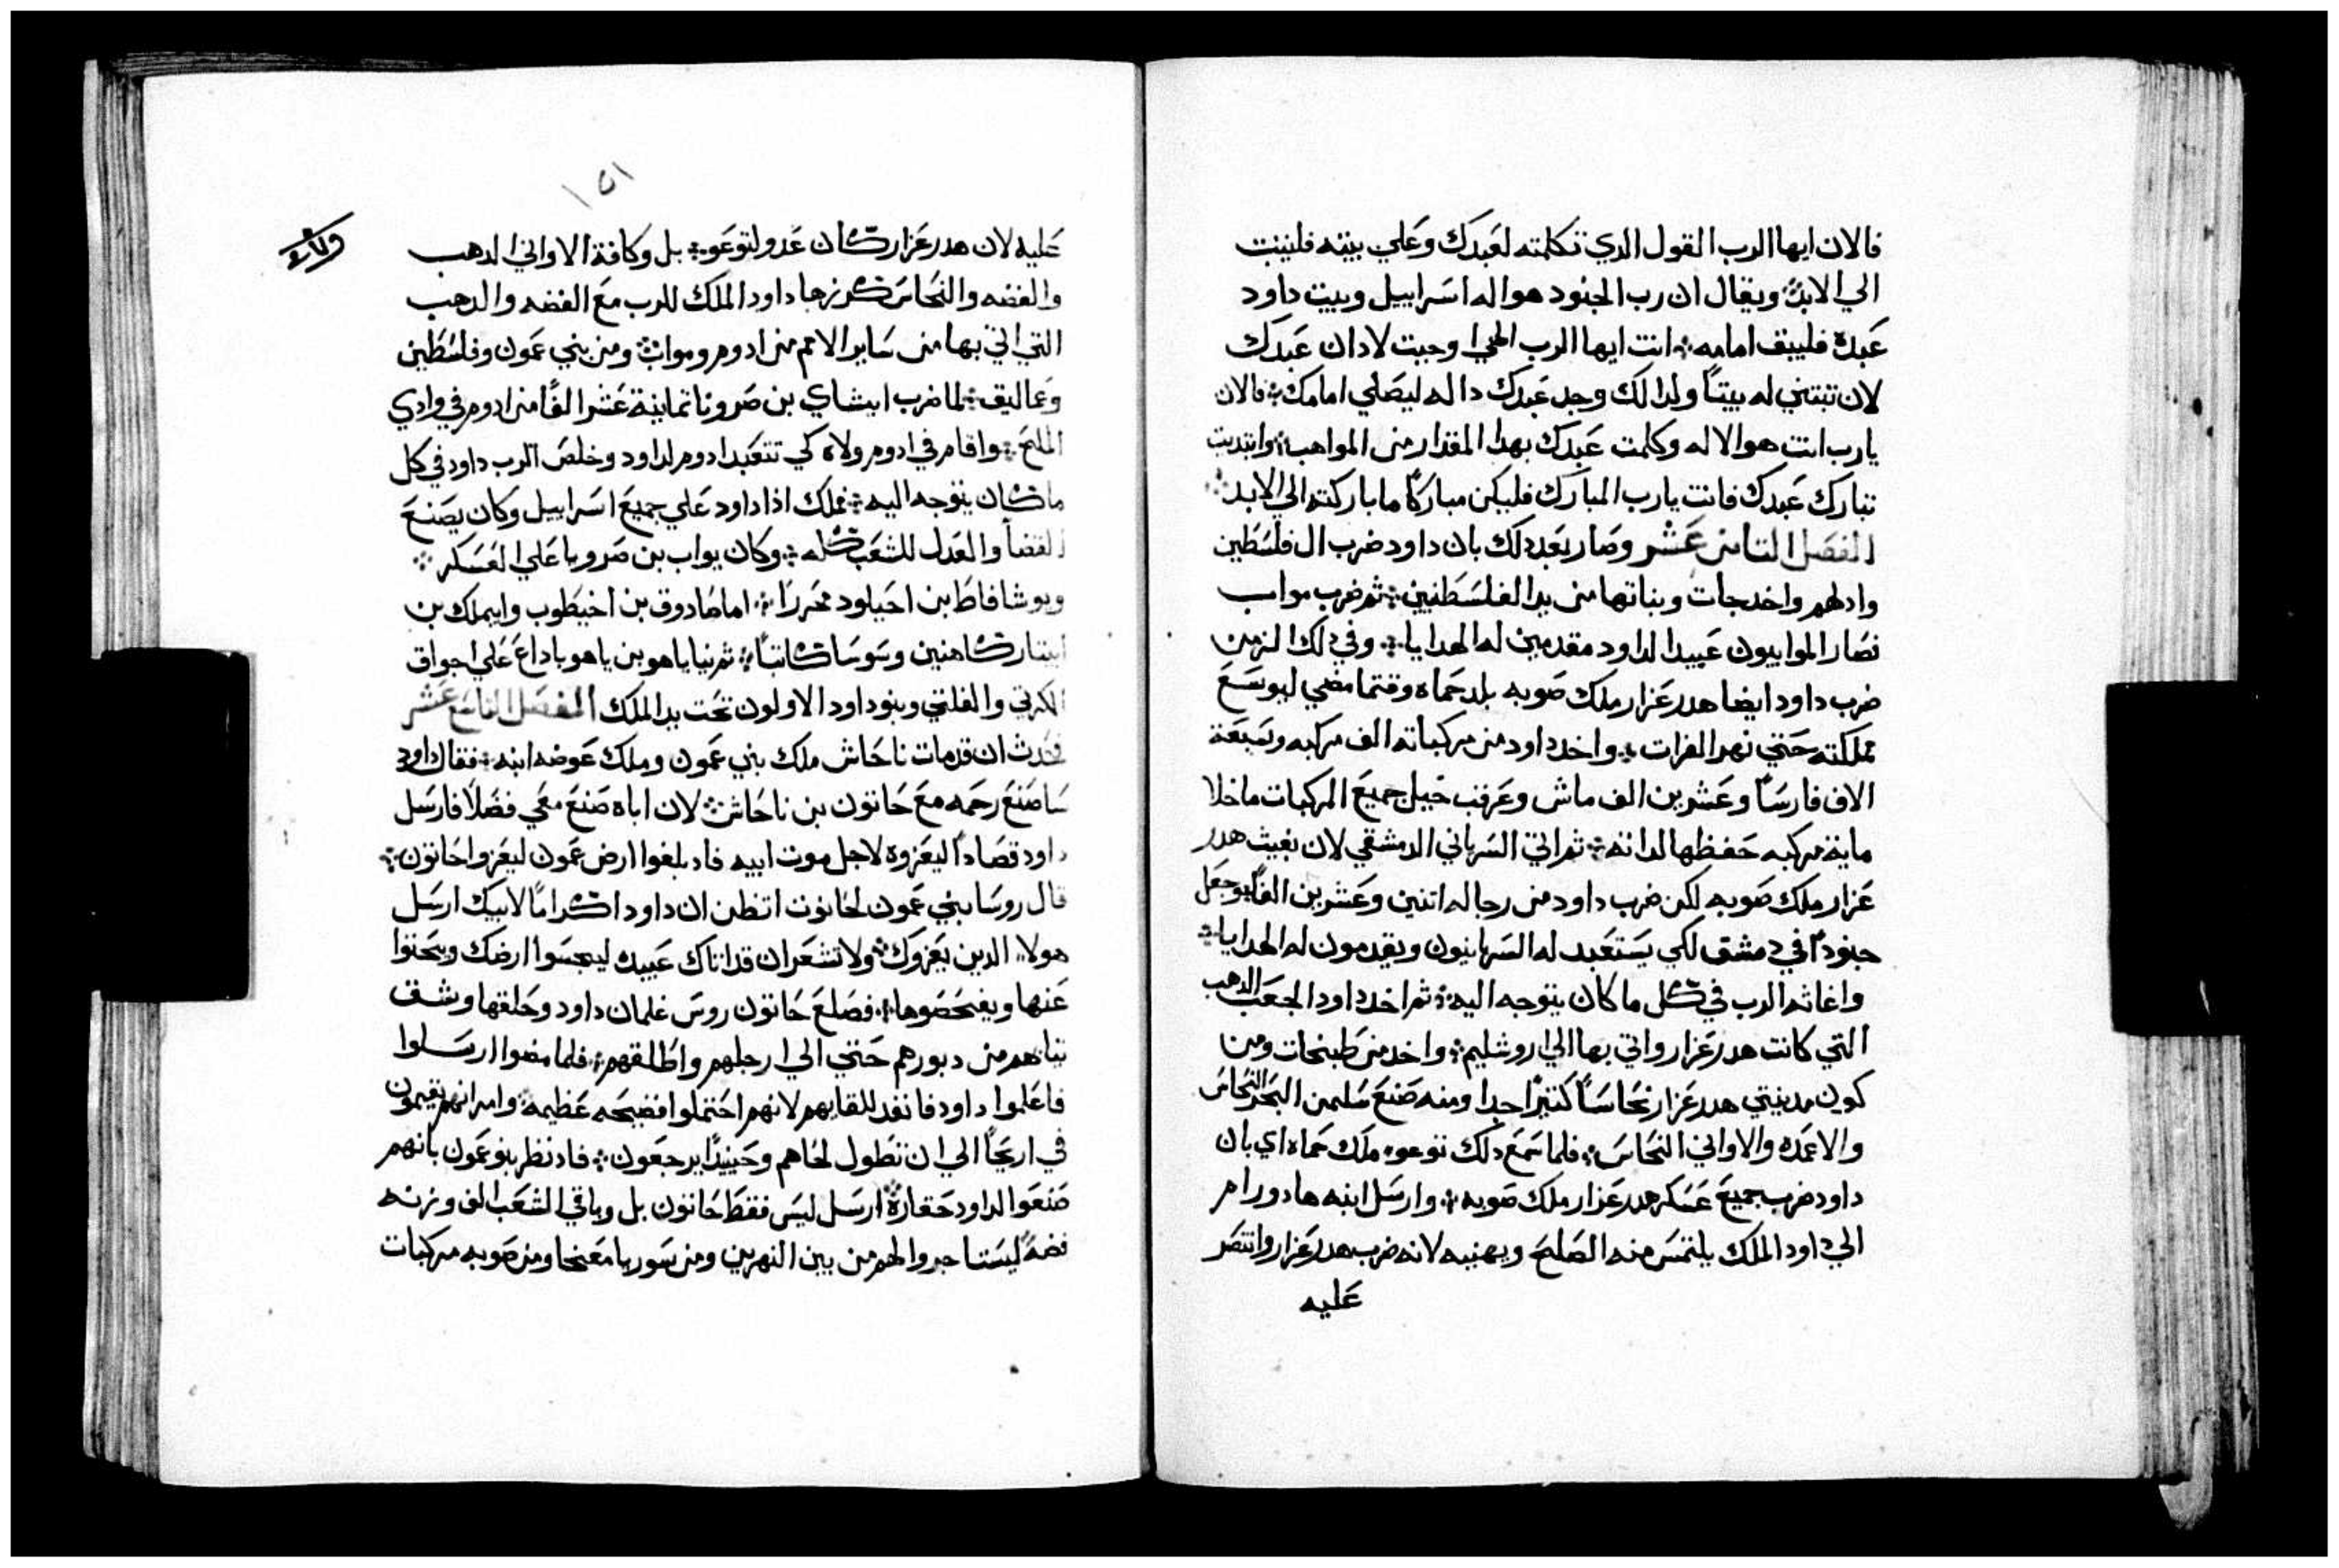 فالان ايها الرب القول الدي تكلمته لعبدك وعلي بيته فليثبت
الي الابد ويقال ان رب الجنود هو اله اسراييل وبيت داود
عبده فليبق امامه انت ايها الرب الهي اوحيت لادان عبدك
لان تبتني له بيتاً ولدالك وجد عبدك داله ليصلي امامك فالان
يارب انت هو الاله وكلمت عبدك بهدا المقدار من المواهب وابتديت
تبارك عبدك فانت يارب المبارك فليكن مباركاً ما باركته الي الابد
الفصل التامن عشر وصار بعد دلك بان داود ضرب ال فلسطين
وادلهم واخد جات وبناتها من يد الفلسطنيين ثم ضرب مواب
فصار الموابيون عبيدا لداود مقدمين له الهدايا وفي دلك الزمن
ضرب داود ايضا هدرعزار ملك صوبه بلد حماه وقتما مضي ليوسع
مملكته حتي نهر الفرات واخد داود من مركباته الف مركبه وسبعة
الاف فارساً وعشرين الف ماش وعرقب خيل جميع المركبات ما خلا
ماية مركبه حفظها لداته ثم اتي السرياني الدمشقي لان يغيث هدر
عزار ملك صوبه لكن ضرب داود من رجاله اتنين وعشرين الفاً وجعل
جنوداً في دمشق لكي يستعبد له السريانيون ويقدمون له الهدايا
واغاثه الرب في كل ما كان يتوجه اليه ثم اخد داود الجعب الدهب
التي كانت هدرعزار واتي بها الي اروشليم واخد من طبخات ومن
كون مدينتي هدرعزار نحاساً كتيراً جدا ومنه صنع سليمن البحر النحاس
والاعمده والاواني النحاس فلما سمع دلك توعوه ملك حماه اي بان
داود ضرب جميع عسكر هدرعزار ملك صوبه وارسل ابنه هادورام
الي داود الملك يلتمس منه الصلح ويهنيه لانه ضرب هدرعزار وانتصر
عليه
١٥١
عليه لان هدرعزار كان عدو لتوعو بل وكافة الاواني الدهب
والفضه والنحاس كرزها داود الملك للرب مع الفضه والدهب
التي اتي بها من ساير الامم من ادوم ومواب ومن بني عمون وفلسطين
وعماليق لما ضرب ابيشاي بن صرويا تماينة عشر الفاً من ادوم في وادي
الملح واقام في ادوم ولاه كي تتعبد ادوم لداود وخلص الرب داود في كل
ما كان يتوجه اليه فملك ادا داود علي جميع اسراييل وكان يصنع
القضا والعدل للشعب كله وكان يواب بن صرويا علي العسكر
ويوشافاط بن احيلود محررا اما صادوق بن اخيطوب وابيملك بن
ابيتار كاهنين وسوسا كاتباً ثم بنايا هو بن ياهوياداع علي اجواق
الكرتي والفلتي وبنو داود الاولون تحت يد الملك الفصل التاسع عشر
فحدث ان قد مات ناحاش ملك بني عمون وملك عوضه ابنه فقال داود
ساصنع رحمه مع حانون بن ناحاش لان اباه صنع معي فضلاً فارسل
داود قصاداً ليعزوه لاجل موت ابيه فاد بلغوا ارض عمون ليعزوا حانون
قال روسا بني عمون لحانون اتظن ان داود اكراماً لابيك ارسل
هولا الدين يعزوك ولا تشعر ان قد اتاك عبيده ليجسوا ارضك ويبحتوا
عنها ويفحصوها فصلع حانون روس غلمان داود وحلقها وشق
تيابهم من دبورهم حتي الي ارجلهم واطلقهم فلما مضوا ارسلوا
فاعلموا داود فانفد للقايهم لانهم احتملوا فضيحه عظيمه وامر انهم يقيمون
في اريحا الي ان تطول لحاهم وحينيداً يرجعون فاد نظر بنو عمون بانهم
صنعوا لداود حقارة ارسل ليس فقط حانون بل وباقي الشعب الف وزنه
فضه ليستاجروا لهم من بين النهرين ومن سوريا معخا ومن صوبه مركبات